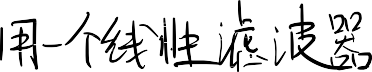 用一个线性滤波器